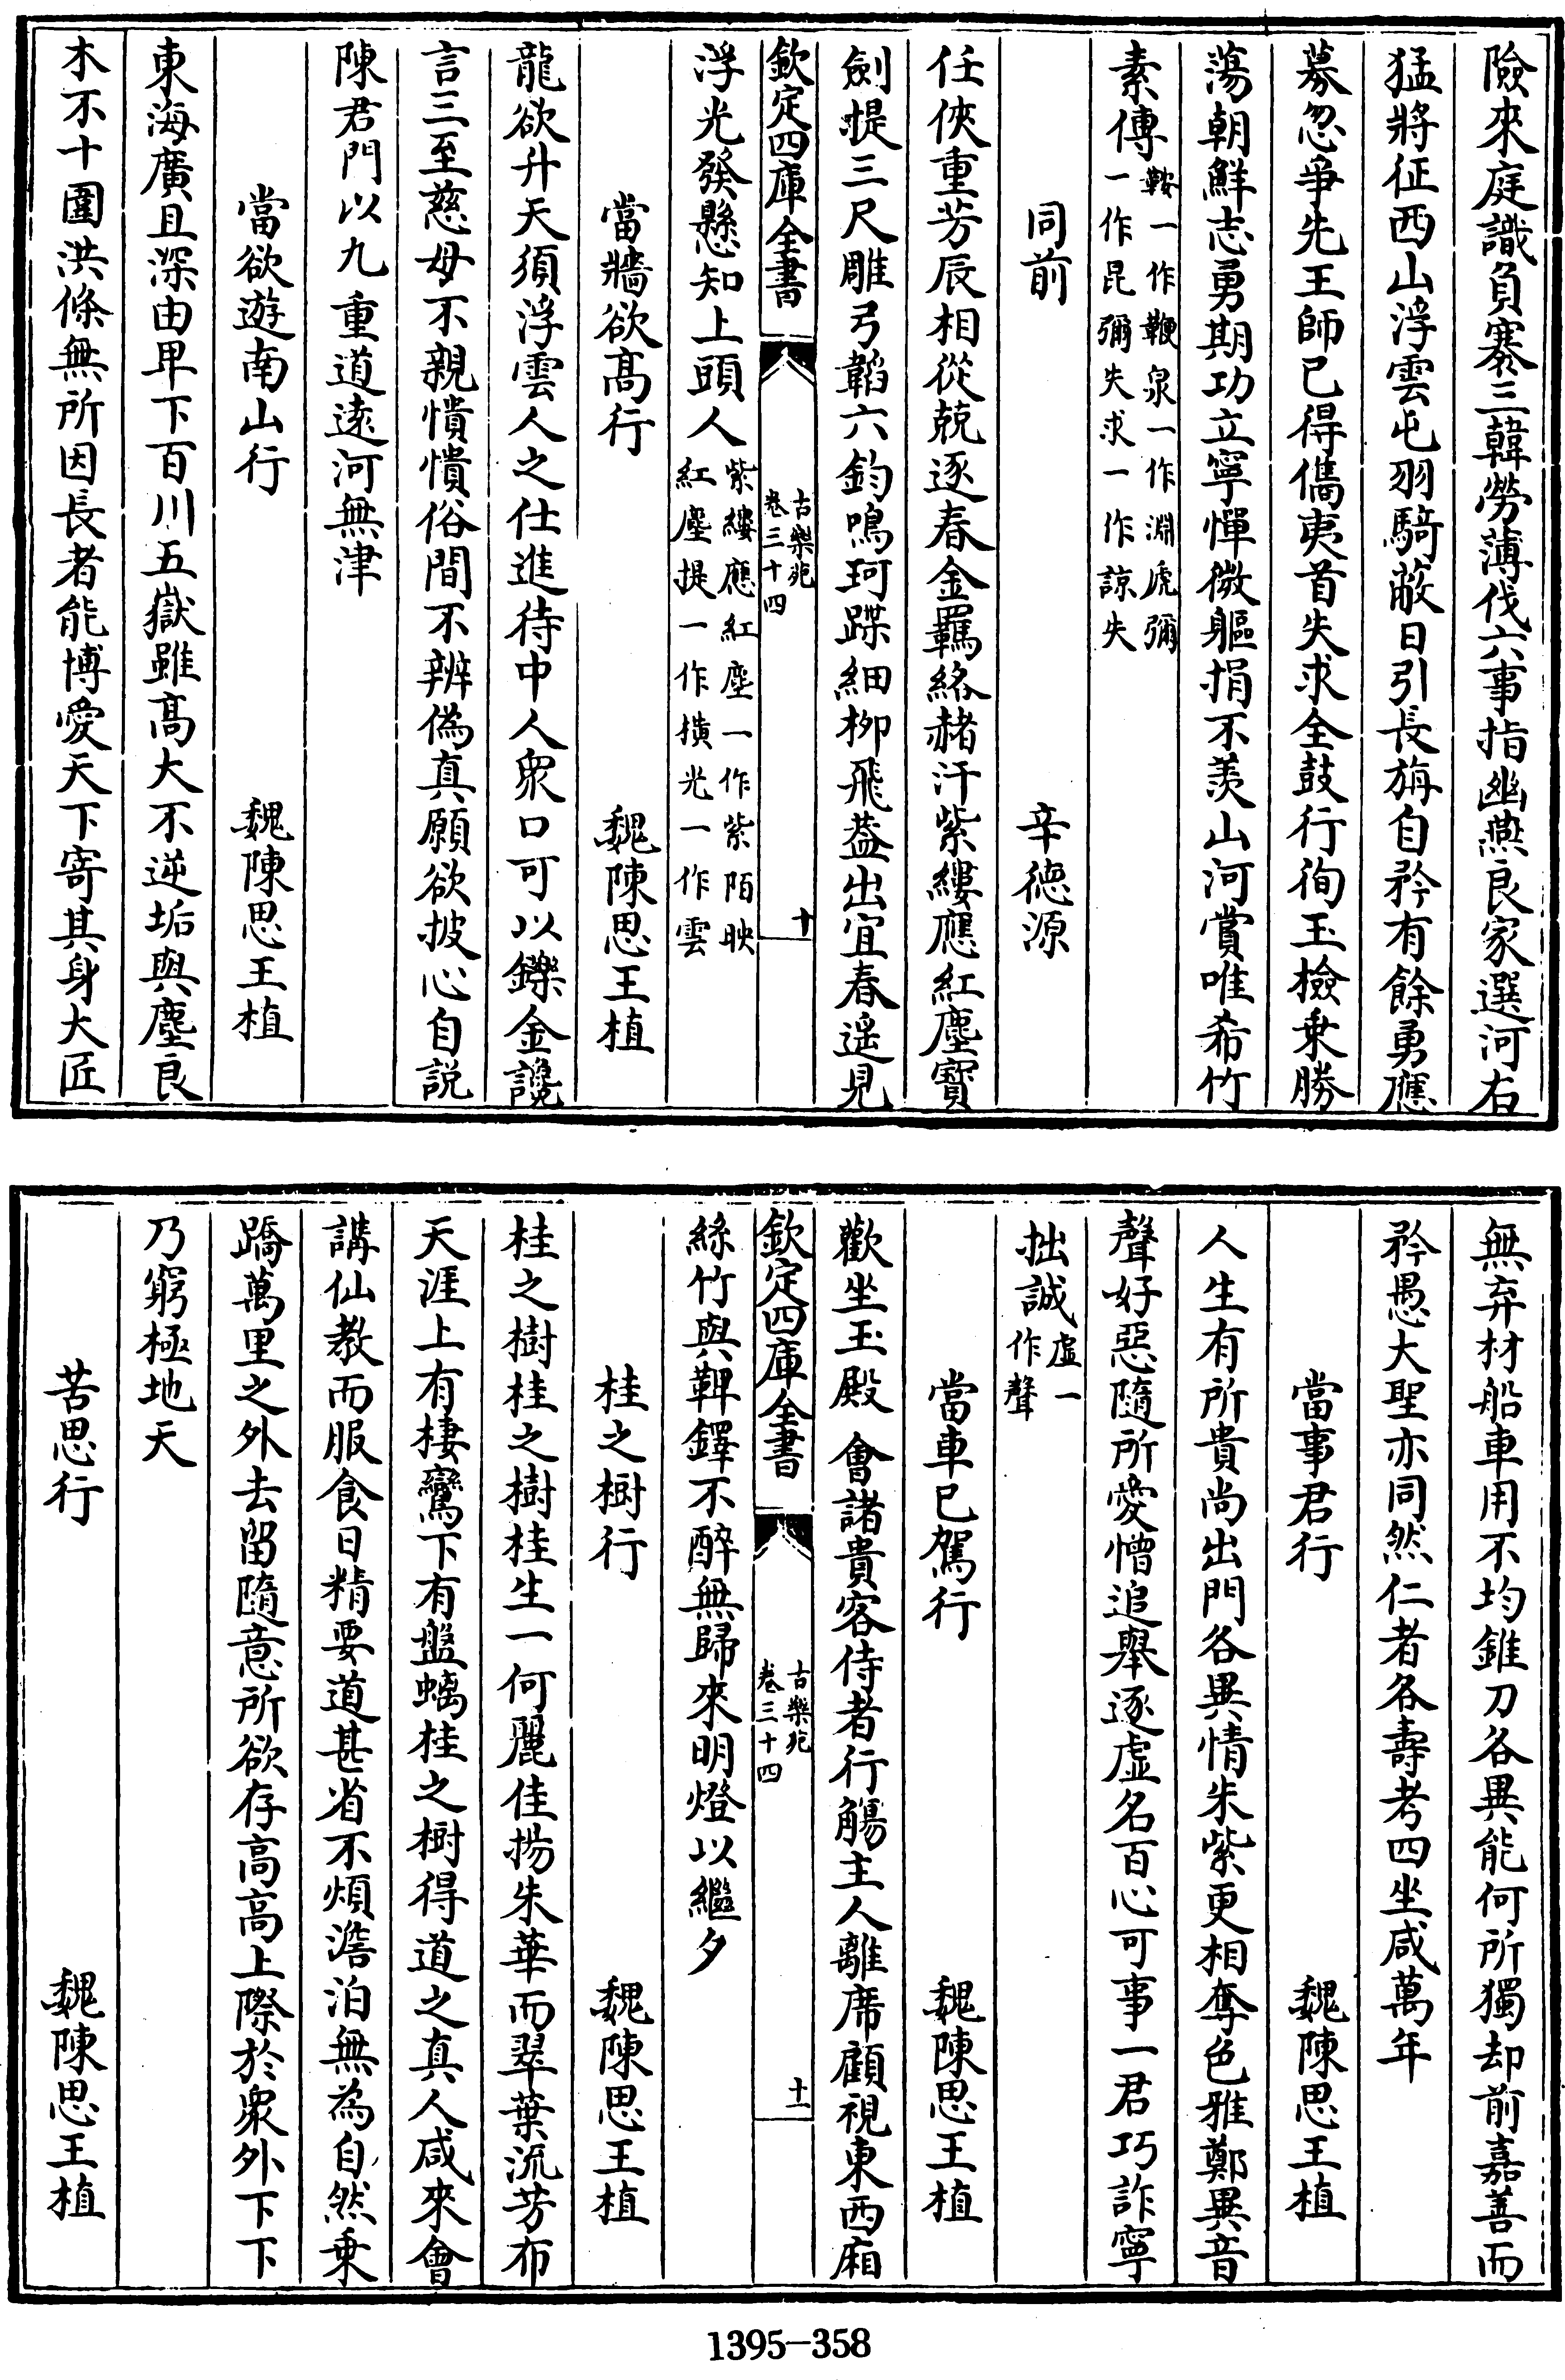 險來庭識負寨三韓勞薄伐六事指幽燕良家選河右
猛將征西山浮雲屯羽騎蔽日引長旃自矜有餘勇應
募忽爭先王師已得儁夷首失求全鼓行徇玉檢乗勝
蕩朝鮮志勇期功立寧憚微軀捐不羨山河賞唯希竹
素傳鞍一作鞭泉一作淵虎彌
一作昆彌失求一作諒失
同前 辛徳源
任俠重芳辰相從兢逐春金羈絡赭汗紫縷應紅塵寳
劍提三尺雕弓韜六鈞鳴珂蹀細栁飛葢出宜春遥見
欽定四庫全書 古樂苑 卷三十四 十
浮光發懸知上頭人紫縷應紅塵一作紫陌映
紅塵提一作横光一作雲
當牆欲髙行 魏陳思王植
龍欲升天須浮雲人之仕進待中人衆口可以鑠金讒
言三至慈母不親憒憒俗間不辨偽真願欲披心自説
陳君門以九重道遠河無津
當欲遊南山行 魏陳思王植
東海廣且深由卑下百川五嶽雖髙大不逆垢與塵良
木不十圍洪條無所因長者能博愛天下寄其身大匠
無弃材船車用不均錐刀各異能何所獨却前嘉善而
矜愚大聖亦同然仁者各壽考四坐咸萬年
當事君行 魏陳思王植
人生有所貴尚出門各異情朱紫更相奪色雅鄭異音
聲好惡隨所愛憎追舉逐虚名百心可事一君巧詐寧
拙誠虚一
作聲
當車已駕行 魏陳思王植
歡坐玉殿 會諸貴客侍者行觴主人離席顧視東西廂
欽定四庫全書 古樂苑 卷三十四 十一
絲竹與鞞鐸不醉無歸來明燈以繼夕
桂之樹行 魏陳思王植
桂之樹桂之樹桂生一何麗佳揚朱華而翠葉流芳布
天涯上有棲鸞下有盤螭桂之樹得道之真人咸來會
講仙教而服食日精要道甚省不煩澹泊無為自然乗
蹻萬里之外去留隨意所欲存高高上際於衆外下下
乃窮極地天
苦思行 魏陳思王植
1395-358